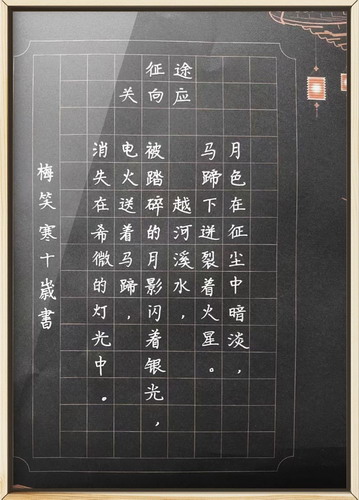 征途
关向应
月色在征尘中暗淡，
马蹄下迸裂着火星。
越河溪水，
被踏碎的月影闪着银光，
电火送着马蹄，
消失在希微的灯光中。
梅笑寒十歲書